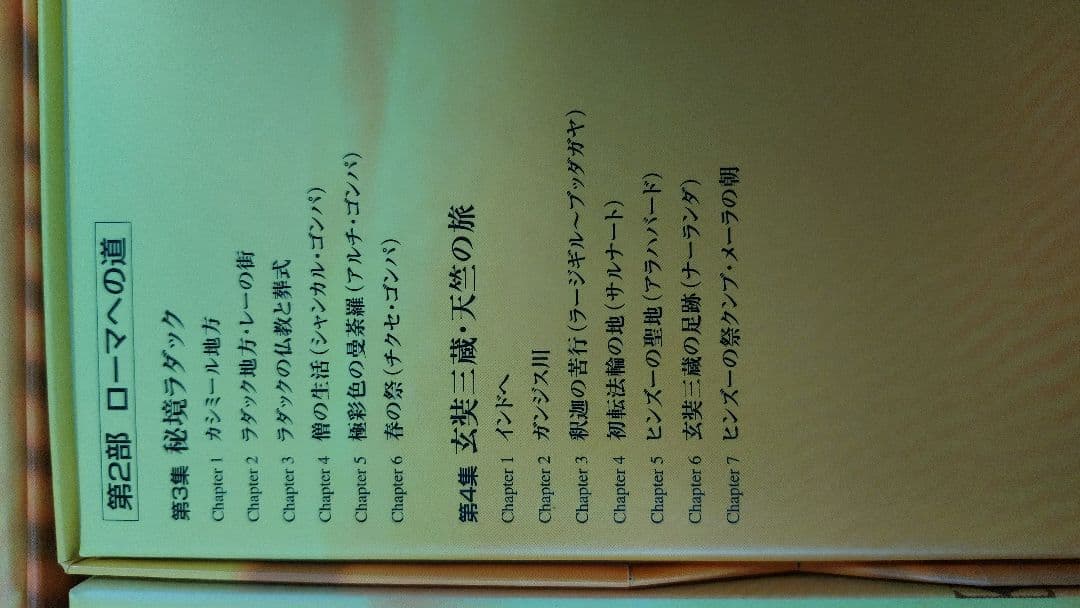 第2部 ローマへの道
第3集 秘境ラダック
Chapter 1 カシミール地方
Chapter 2 ラダック地方・レーの街
Chapter 3 ラダックの仏教と葬式
Chapter 4 僧の生活(シャンカル・ゴンパ)
Chapter 5 極彩色の曼荼羅(アルチ・ゴンパ)
Chapter 6 春の祭(チクセ・ゴンパ)
第4集 玄奘三蔵・天竺の旅
Chapter 1 インドへ
Chapter 2 ガンジス川
Chapter 3 釈迦の苦行(ラージギル〜ブッダガヤ)
Chapter 4 初転法輪の地(サルナート)
Chapter 5 ヒンズーの聖地(アラハバード)
Chapter 6 玄奘三蔵の足跡(ナーランダ)
Chapter 7 ヒンズーの祭クンブ・メーラの朝